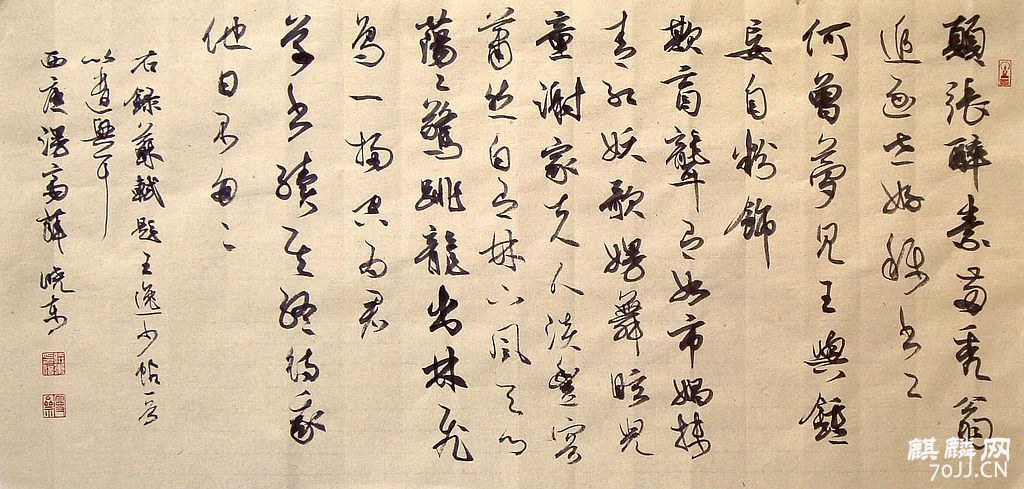 顛張醉素兩禿翁
追逐世好稱書工
何曾夢見王與鍾
妄自粉飾
欺盲聾有如市娼抹
青紅妖歌嫚舞眩兒
童謝家夫人淡豐容
蕭然自有林下風天門
蕩々驚跳龍出林飛
鳥一掃空為君
草書續其終待我
他日不匆々
右錄蘇軾題王逸少帖一首
以遣興
薛曉東
麒麟网
70JJ.CN